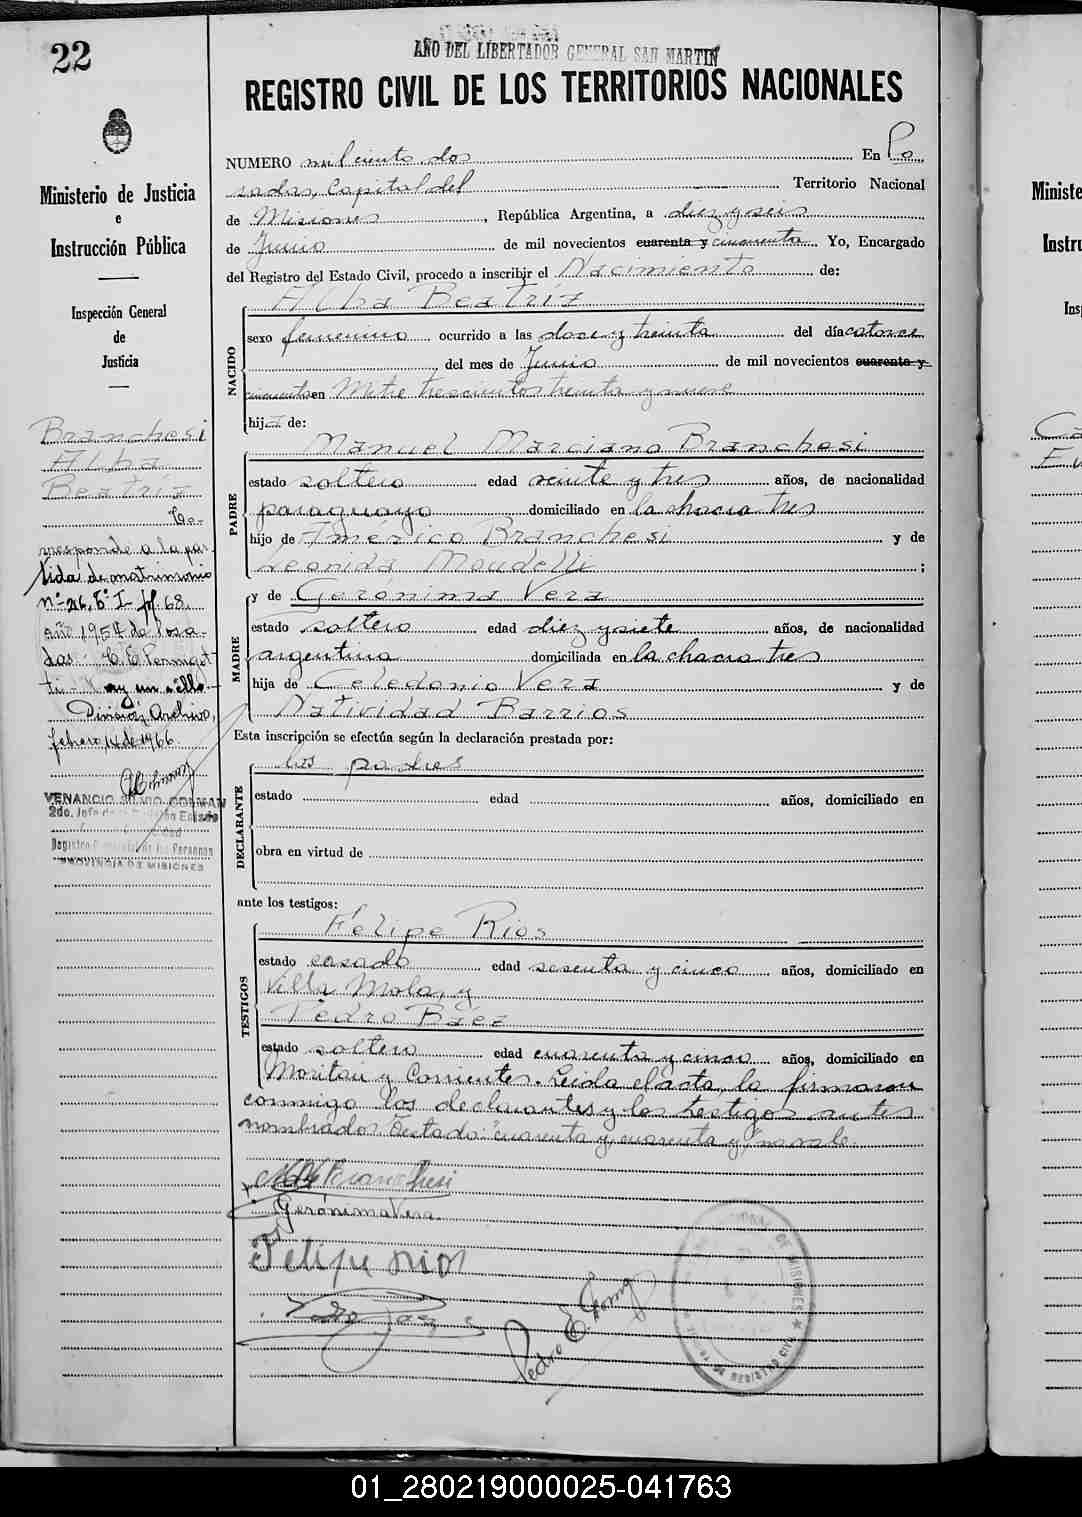 22
AÑO DEL LIBERTADOR GENERAL SAN MARTIN
REGISTRO CIVIL DE LOS TERRITORIOS NACIONALES
Ministerio de Justicia
e
Instrucción Pública
Inspección General
de
Justicia
Branchesi
Alba
Beatríz
Co-
rresponde a la par-
tida de matrimonio
nº 26, Tº I fol 68.
año 1954 de Posa-
das. C. E. 
Hay un sello
División Archivo,
febrero 14 de 1966.
VENANCIO SILVIO COLMAN
2do. Jefe
Registro Provincial de las Personas
PROVINCIA DE MISIONES
NUMERO mil ciento dos En Po
sadas, Capital del Territorio Nacional
de Misiones, República Argentina, a diez y seis
de Junio de mil novecientos cuarenta y cincuenta Yo, Encargado
del Registro del Estado Civil, procedo a inscribir el Nacimiento de:
NACIDO
Alba Beatríz
sexo femenino ocurrido a las doce y treinta del día catorce
del mes de Junio de mil novecientos cuarenta y
cincuenta en Mitre trescientos treinta y nueve
hija de:
PADRE
Manuel Marciano Branchesi
estado soltero edad veinte y tres años, de nacionalidad
paraguayo domiciliado en la chacra tres
hijo de Américo Branchesi y de
Leonida ;
MADRE
y de Geronima Vera
estado soltero edad diez y siete años, de nacionalidad
argentina domiciliada en la chacra tres
hija de Celedonio Vera y de
Natividad Barrios
Esta inscripción se efectúa según la declaración prestada por:
DECLARANTE
los padres
estado edad años, domiciliado en
obra en virtud de
ante los testigos:
TESTIGOS
Felipe Rios
estado casado edad sesenta y cinco años, domiciliado en
Villa Mola, y
Pedro Báez
estado soltero edad cuarenta y cinco años, domiciliado en
Moritan y Corrientes. Leida el acta, la firmaron
conmigo los declarantes y los testigos antes
nombrados. Testado: "cuarenta y, cuarenta y," no vale.
Branchesi
Gerónima Vera
Felipe Rios
Pedro Baez
Pedro E.
REGISTRO CIVIL
DE MISIONES
Ministe
Instru
Insp
01_280219000025-041763